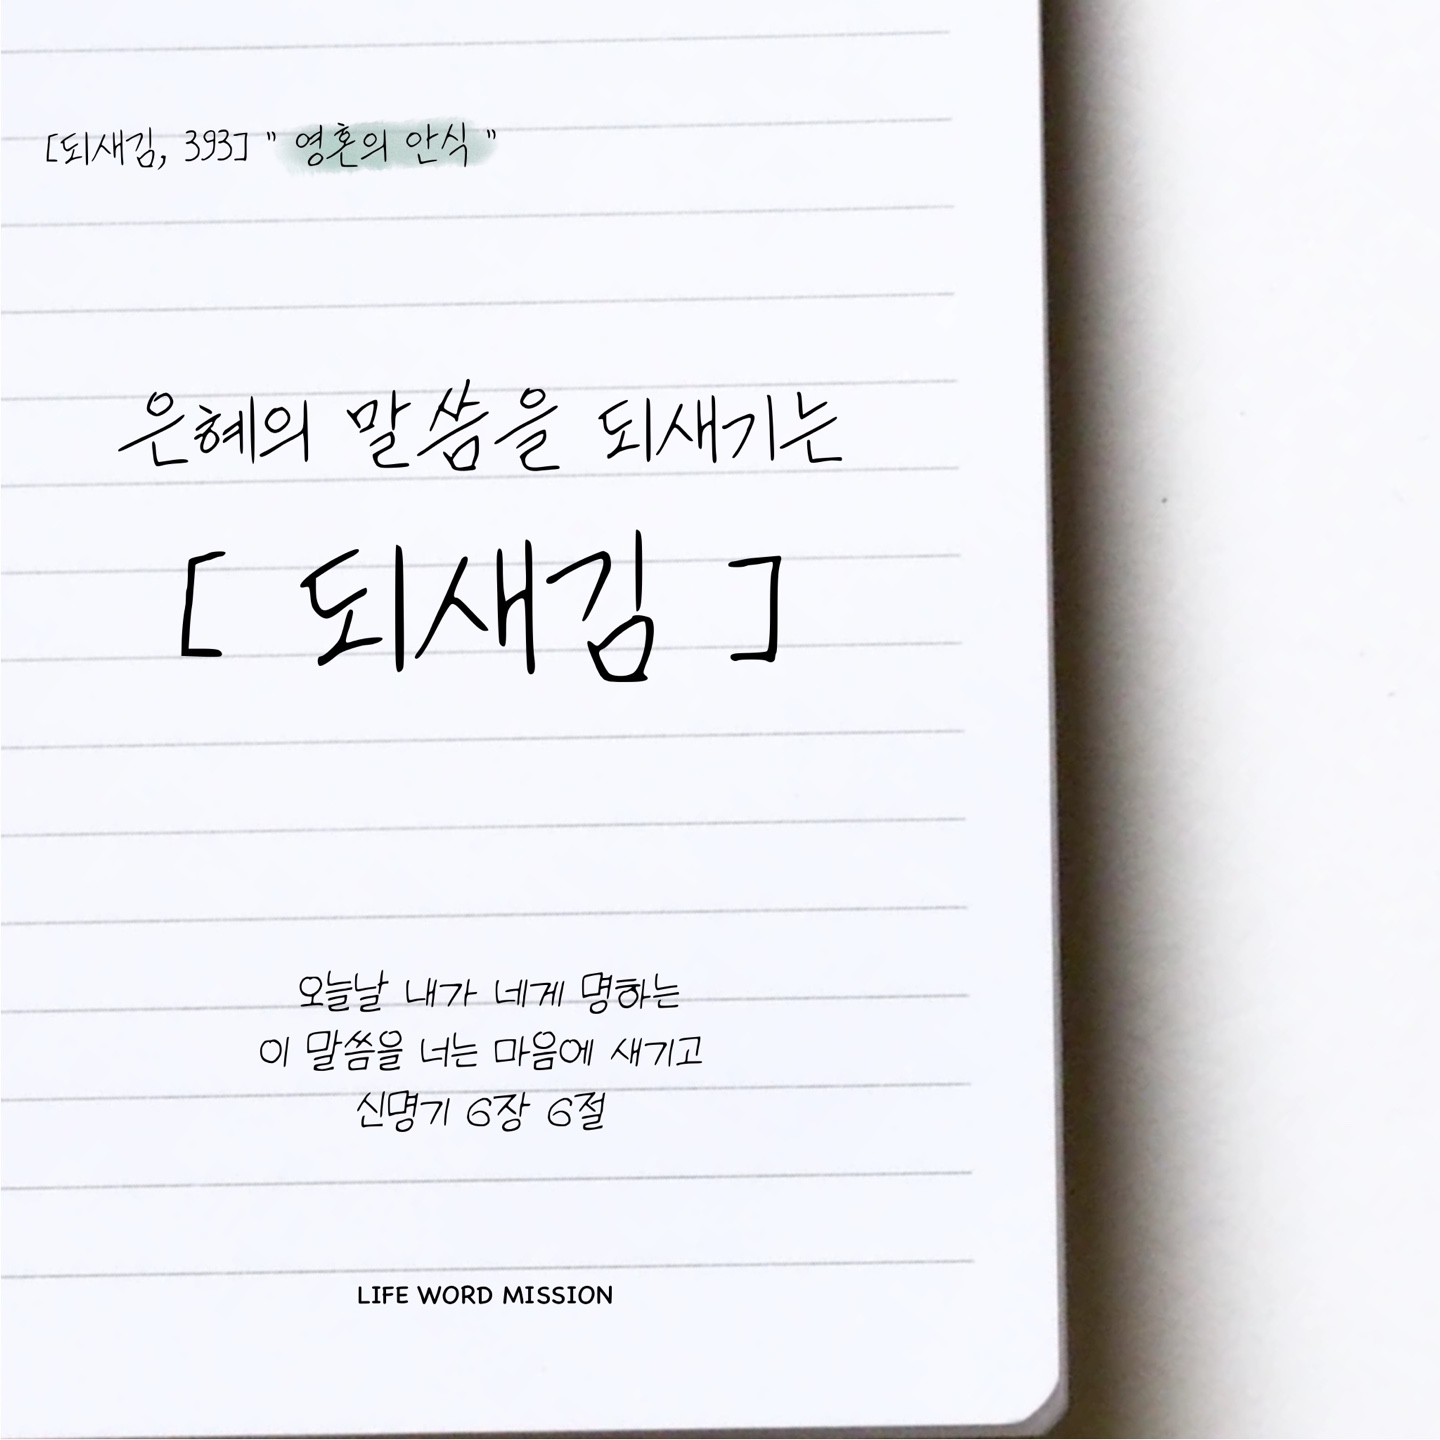 [되새김, 393] " 영혼의 안식 "
은혜의 말씀을 되새기는
[ 되새김 ]
오늘날 내가 네게 명하는
이 말씀을 너는 마음에 새기고
신명기 6장 6절
LIFE WORD MISSION